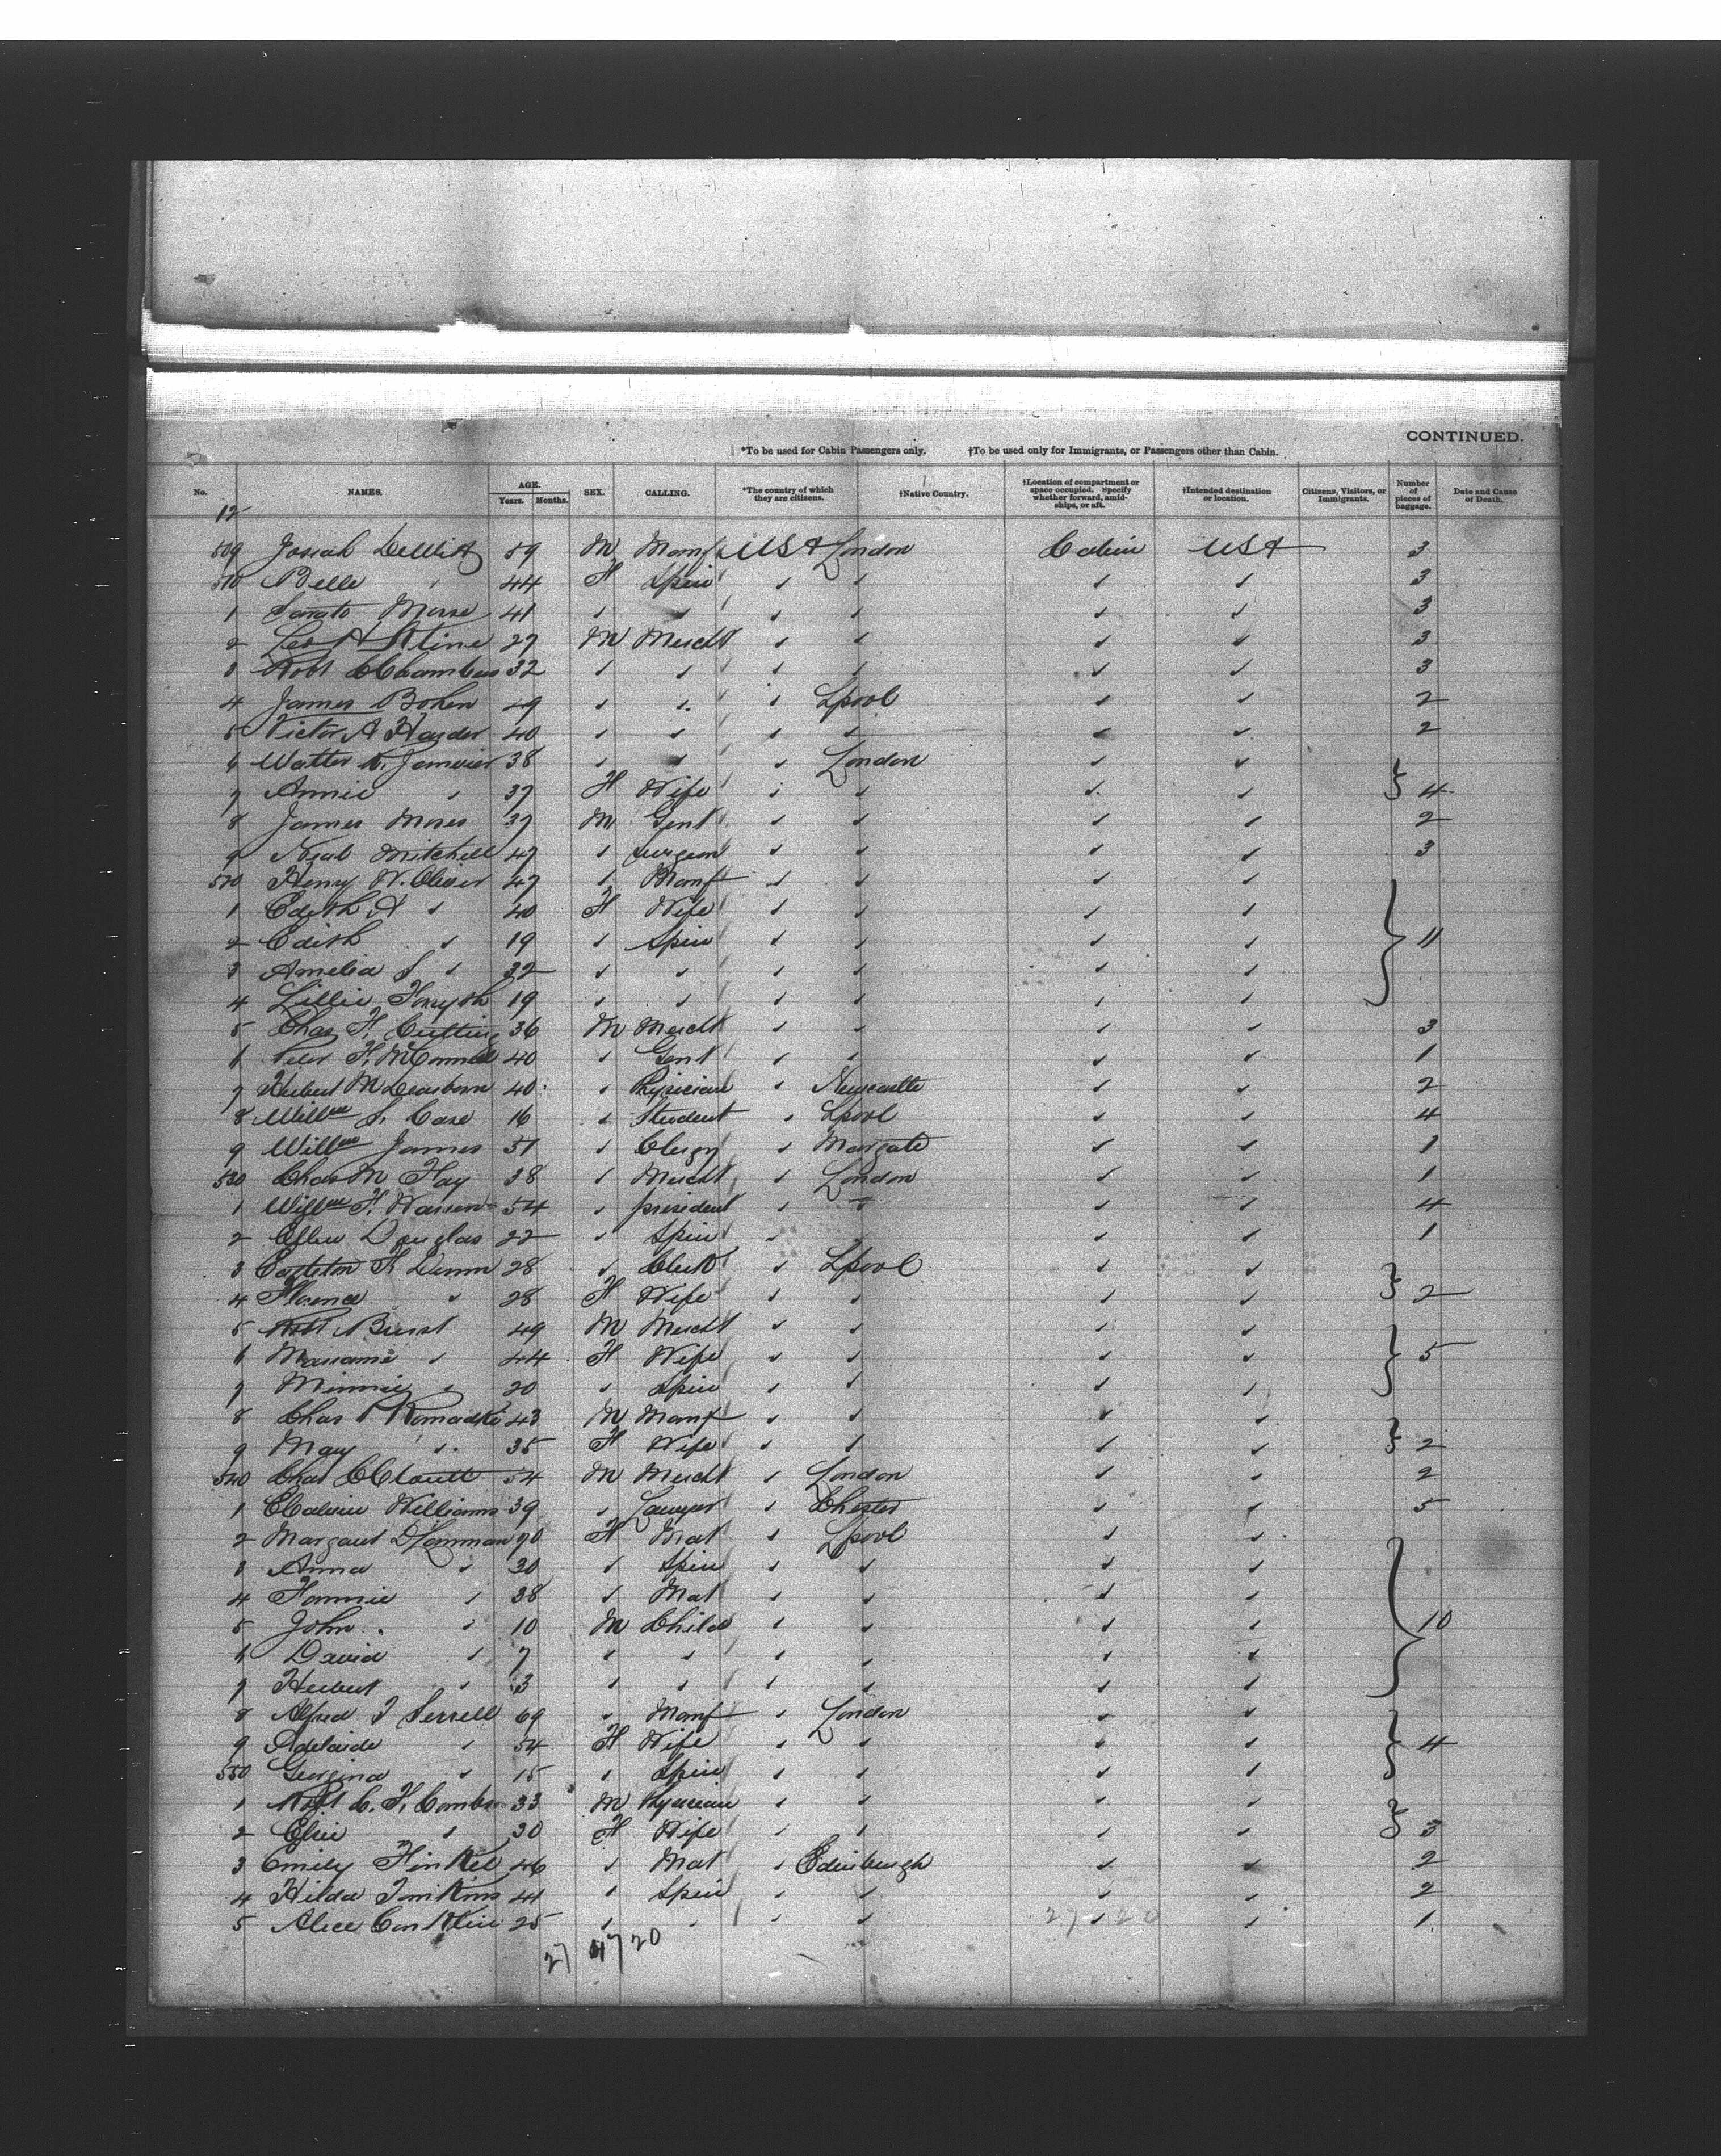 CONTINUED.
*To be used for Cabin Passengers only. †To be used only for Immigrants, or Passengers other than Cabin.
No. NAMES. AGE. Years. Months. SEX. CALLING. *The country of which they are citizens. †Native Country. †Location of compartment or space occupied. Specify whether forward, amidships, or aft. †Intended destination or location. Citizens, Visitors, or Immigrants. Number of pieces of baggage. Date and Cause of Death.
12
509 Josiah DeWitt 59 M Manf USA London Cabin USA 3
510 Belle " 44 F Spin " " " " 3
1 Morse 41 " " " " " " 3
2 Leo A Kline 27 M Mercht " " " " 3
3 Robt C Chambers 32 " " " " " " 3
4 James Bohen 29 " " " Lpool " " 2
5 Victor A Harder 40 " " " " " " 2
6 Walter Janvier 38 " " " London " "
7 Annie " 37 F Wife " " " " 4
8 James Moses 37 M Gent " " " " 2
9 Neal Mitchell 47 " Surgeon " " " " 3
520 Henry W. Oliver 47 " Manf " " " "
1 Edith A " 40 F Wife " " " "
2 Edith " 19 " Spin " " " " 11
3 Amelia S " 32 " " " " " "
4 Lillie Forsyth 19 " " " " " "
5 Chas F. Cutting 36 M Mercht " " " " 3
6 Peter F. McConnell 40 " Gent " " " " 1
7 Hubert M Dearborn 40 " Physician " Newcastle " " 2
8 Willm S. Case 16 " Student " Lpool " " 4
9 Willm James 51 " Clergy " Margate " " 1
530 Chas M Hay 38 " Mercht " London " " 1
1 Willm F. Warren 54 " president " " " " 4
2 Ellen Douglas 22 " Spin " " " " 1
3 Carleton F. Dunn 28 " Clerk " Lpool " "
4 Florence " 28 F Wife " " " " 2
5 Robt Buist 49 M Mercht " " " "
6 " 44 F Wife " " " " 5
7 Minnie " 20 " Spin " " " "
8 Chas P Romadka 43 M Manf " " " "
9 Mary " 35 F Wife " " " " 2
540 Chas 54 M Mercht " London " " 2
1 Williams 39 " Lawyer " Chester " " 5
2 Margaret D Lamman 70 F Mat " Lpool " "
3 Anna " 30 " Spin " " " "
4 Fannie " 38 " Mat " " " "
5 John " 10 M Child " " " " 10
6 David " 7 " " " " " "
7 Herbert " 3 " " " " " "
8 Alfred T Serrell 69 " Manf " London " "
9 Adelaide " 54 F Wife " " " " 4
550 Georgina " 15 " Spin " " " "
1 Robt C. F. Combs 33 M Physician " " " "
2 Elsie " 30 F Wife " " " " 3
3 Emily Hinkel 46 " Mat " Edinburgh " " 2
4 Hilda Tomkins 41 " Spin " " " " 2
5 Alice Conklin 25 " " " " " " 1
27 20
27 47 20